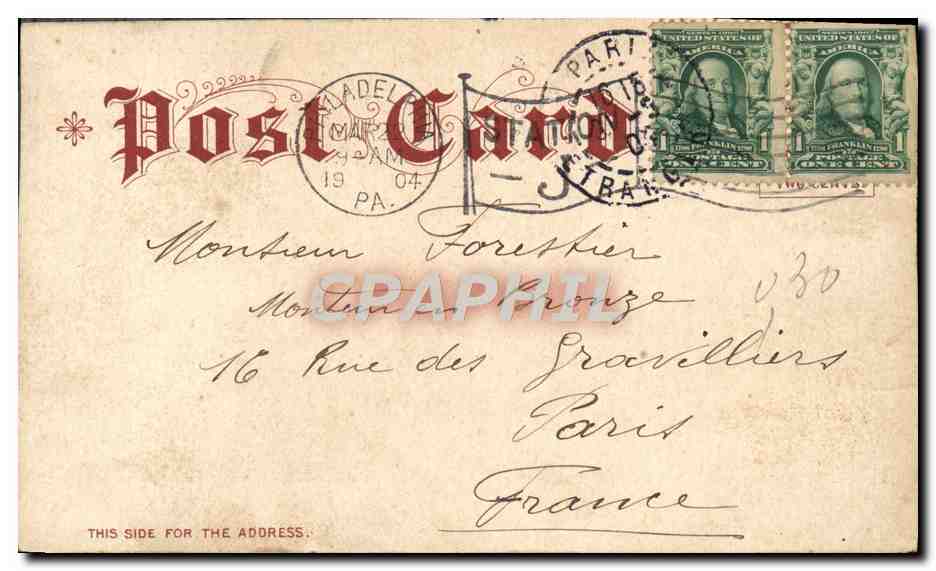 Post Card
PHILADELPHIA
MAR 22
9 AM
19 04
PA.
STATION
J
PARIS
ETRANGER
SERIES 1902
UNITED STATES OF
AMERICA
1 1
FRANKLIN
POSTAGE
ONE CENT
SERIES 1902
UNITED STATES OF
AMERICA
1 1
FRANKLIN
POSTAGE
ONE CENT
TWO CENTS
Monsieur Forestier
Monteur en Bronze
030
16 Rue des Gravilliers
Paris
France
CPAPHIL
THIS SIDE FOR THE ADDRESS.